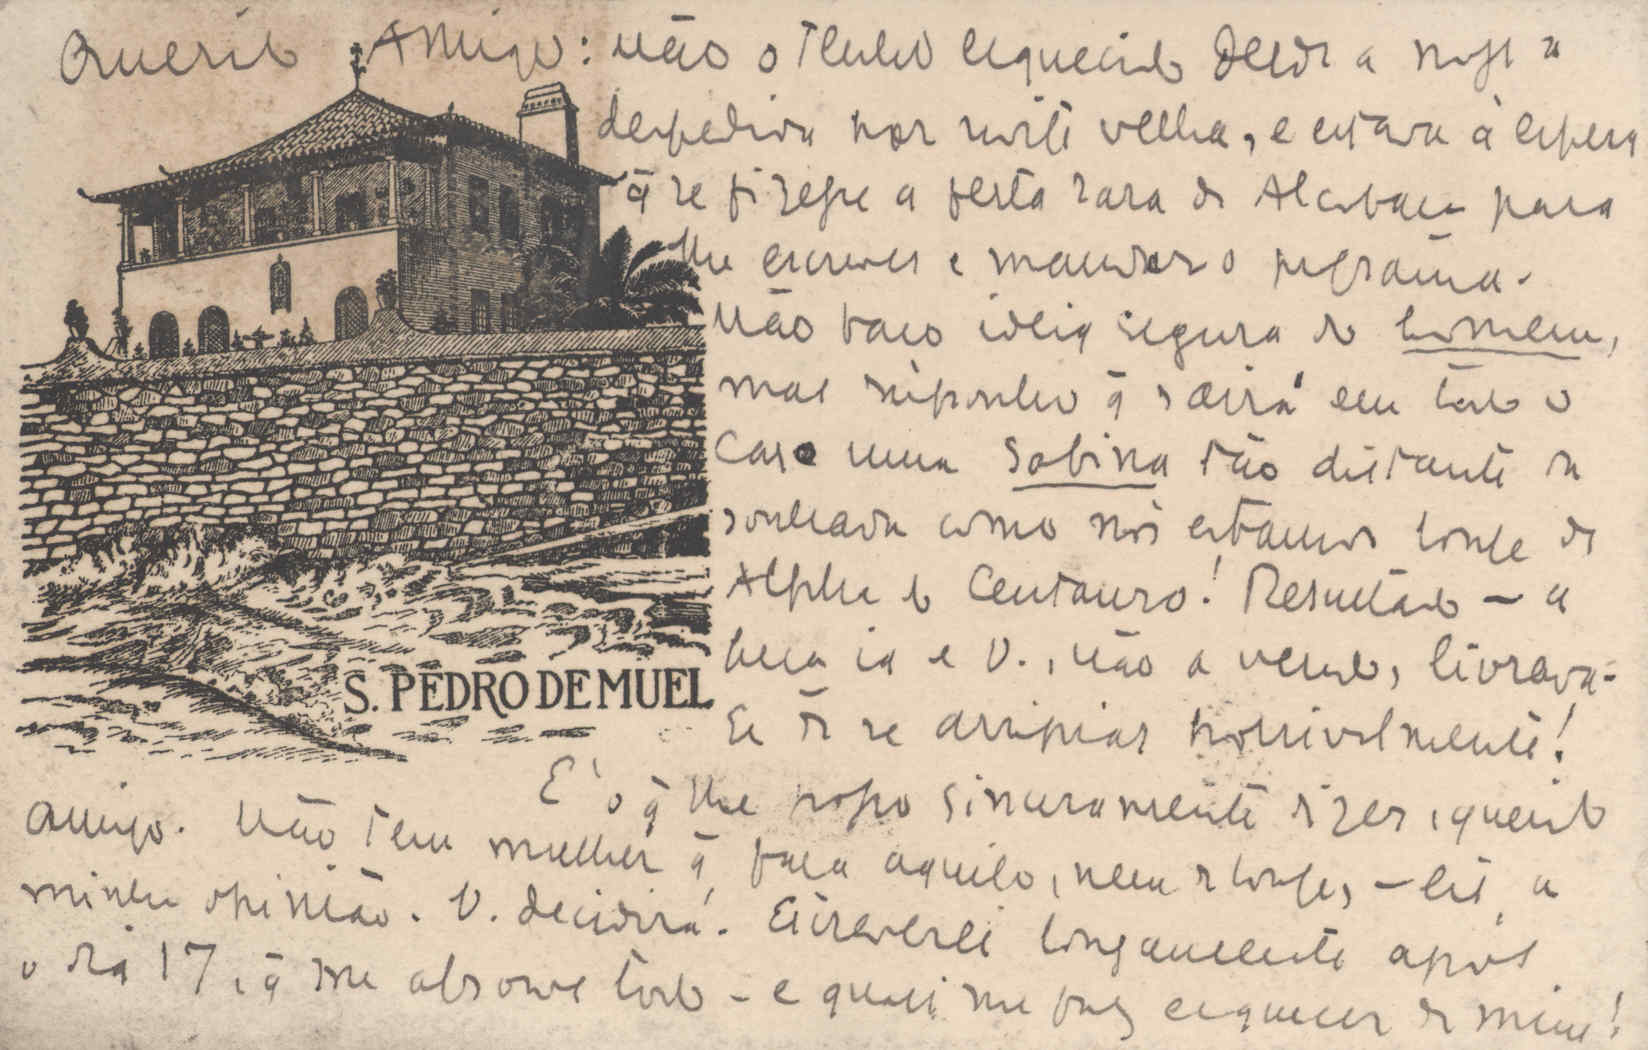 Querido Amigo: não o tenho esquecido desde a nossa
despedida por noite velha, e estava à espera
q̃ se fizesse a festa rara de Alcobaça para
lhe escrever e mandar o programa.
Não faço ideia segura do homem,
mas suponho q̃ sairá em todo o
caso uma Sabina tão distante da
sonhada como nós estamos longe de
Alpha do Centauro! Resultado — a
peça ia e V., não a vendo, livrava-
se de se arripiar horrivelmente!
E' o q̃ lhe posso sinceramente dizer, querido
Amigo. Não tem mulher q̃ faça aquilo, nem de longe, — eis a
minha opinião. V. decidirá. Escreverei longamente após
o dia 17, q̃ me absorve todo — e quasi me faz esquecer de mim!
S. PEDRO DE MUEL